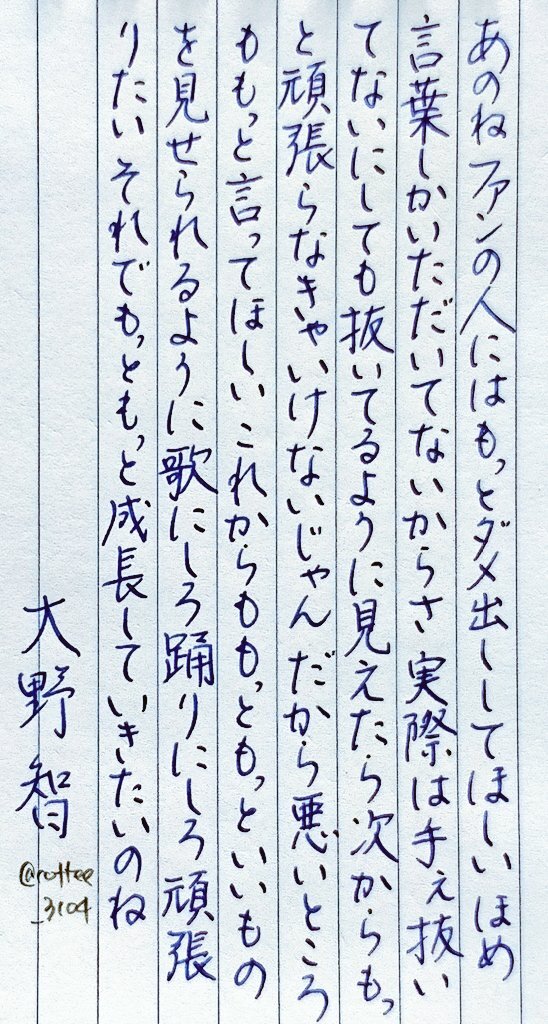 あのねファンの人にはもっとダメ出ししてほしい ほめ
言葉しかいただいてないからさ 実際は手ぇ抜い
てないにしても抜いてるように見えたら次からもっ
と頑張らなきゃいけないじゃん だから悪いところ
ももっと言ってほしい これからももっともっといいもの
を見せられるように歌にしろ踊りにしろ頑張
りたい それでもっともっと成長していきたいのね
大野智
@rottee
_3104